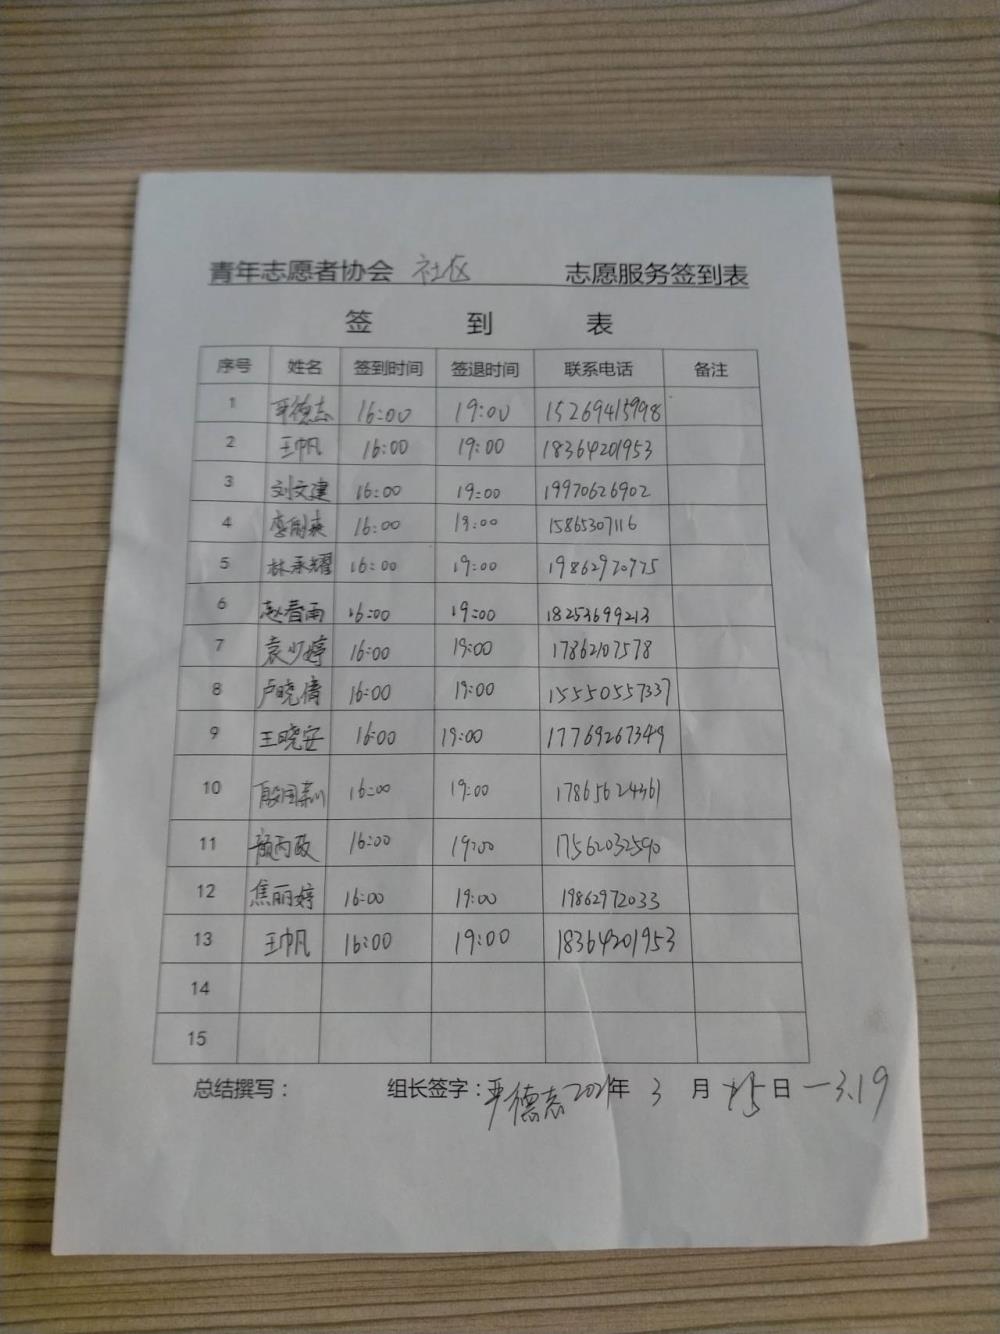 青年志愿者协会 社区 志愿服务签到表
签 到 表
序号 姓名 签到时间 签退时间 联系电话 备注
1 平德志 16:00 19:00 15269415998
2 王帅凡 16:00 19:00 18364201953
3 刘文建 16:00 19:00 19970626902
4 16:00 19:00 15865307116
5 林承耀 16:00 19:00 19862970775
6 赵春雨 16:00 19:00 18253699213
7 袁少婷 16:00 19:00 17862107578
8 卢晓倩 16:00 19:00 15550557337
9 王晓安 16:00 19:00 17769267349
10 16:00 19:00 17865624361
11 颜丙政 16:00 19:00 17562032590
12 焦丽婷 16:00 19:00 19862972033
13 王帅凡 16:00 19:00 18364201953
14
15
总结撰写： 组长签字：平德志 2021年 3 月 15日 —3.19